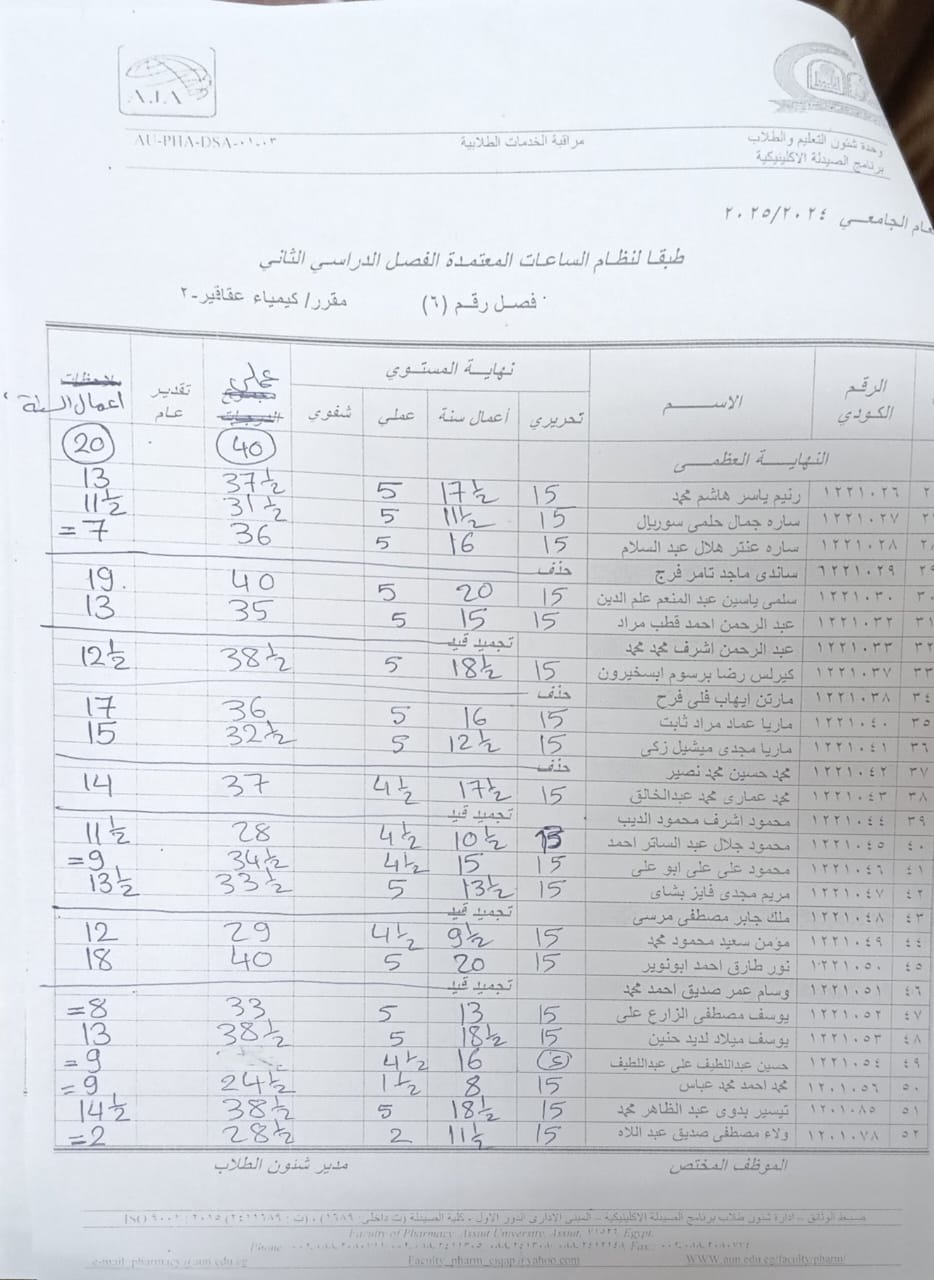 A.I.A
AU-PHA-DSA-٠١-٠٣
مراقبة الخدمات الطلابية
وحدة شئون التعليم والطلاب
برنامج الصيدلة الاكلينيكية
عام الجامعي ٢٠٢٥/٢٠٢٤
طبقا لنظام الساعات المعتمدة الفصل الدراسي الثاني
فصل رقم (٦) مقرر/ كيمياء عقاقير-٢
الرقم الكودي الاسم نهاية المستوي عملي تقدير عام أعمال السنة
تحريري أعمال سنة عملي شفوي
النهاية العظمى 40 20
١٢٢١٠٢٦ رنيم ياسر هاشم محمد 15 17½ 5 37½ 13
١٢٢١٠٢٧ ساره جمال حلمى سوريال 15 11½ 5 31½ 11½
١٢٢١٠٢٨ ساره عنتر هلال عبد السلام 15 16 5 36 =7
٦٢٢١٠٢٩ ساندى ماجد تامر فرج حذف
١٢٢١٠٣٠ سلمى ياسين عبد المنعم علم الدين 15 20 5 40 19.
١٢٢١٠٣٢ عبد الرحمن احمد قطب مراد 15 15 5 35 13
٣٢ ١٢٢١٠٣٣ عبد الرحمن اشرف محمد محمد تجميد قيد
٣٣ ١٢٢١٠٣٧ كيرلس رضا برسوم ابسخيرون 15 18½ 5 38½ 12½
٣٤ ١٢٢١٠٣٨ مارتن ايهاب فلى فرح حذف
٣٥ ١٢٢١٠٤٠ ماريا عماد مراد ثابت 15 16 5 36 17
٣٦ ١٢٢١٠٤١ ماريا مجدى ميشيل زكى 15 12½ 5 32½ 15
٣٧ ١٢٢١٠٤٢ محمد حسين محمد نصير حذف
٣٨ ١٢٢١٠٤٣ محمد عمارى محمد عبدالخالق 15 17½ 4½ 37 14
٣٩ ١٢٢١٠٤٤ محمود اشرف محمود الديب تجميد قيد
٤٠ ١٢٢١٠٤٥ محمود جلال عبد الساتر احمد 13 10½ 4½ 28 11½
٤١ ١٢٢١٠٤٦ محمود على على ابو على 15 15 4½ 34½ =9
٤٢ ١٢٢١٠٤٧ مريم مجدى فايز بشاى 15 13½ 5 33½ 13½
٤٣ ١٢٢١٠٤٨ ملك جابر مصطفى مرسى تجميد قيد
٤٤ ١٢٢١٠٤٩ مؤمن سعيد محمود محمد 15 9½ 4½ 29 12
٤٥ ١٢٢١٠٥٠ نور طارق احمد ابونوير 15 20 5 40 18
٤٦ ١٢٢١٠٥١ وسام عمر صديق احمد محمد تجميد قيد
٤٧ ١٢٢١٠٥٢ يوسف مصطفى الزارع على 15 13 5 33 =8
٤٨ ١٢٢١٠٥٣ يوسف ميلاد لديد حنين 15 18½ 5 38½ 13
٤٩ ١٢٢١٠٥٤ حسين عبداللطيف على عبداللطيف 16 4½ =9
٥٠ ١٢٠١٠٥٦ محمد احمد محمد عباس 15 8 1½ 24½ =9
٥١ ١٢٠١٠٨٥ تيسير بدوى عبد الظاهر محمد 15 18½ 5 38½ 14½
٥٢ ١٢٠١٠٧٨ ولاء مصطفى صديق عبد اللاه 15 11½ 2 28½ =2
الموظف المختص مدير شئون الطلاب
ضبط الوثائق – ادارة شئون طلاب برنامج الصيدلة الاكلينيكية – المبنى الادارى الدور الاول - كلية الصيدلة
Faculty of Pharmacy Assiut University Assiut, ٧١٥٢٦ Egypt.
Faculty_pharm_cqap@yahoo.com